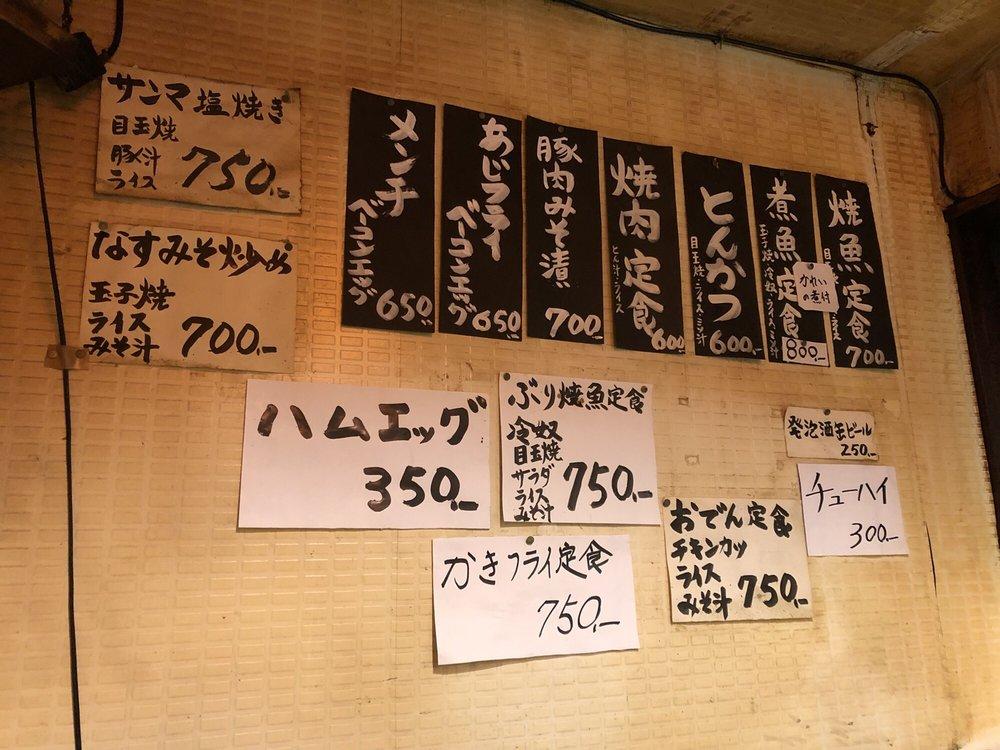 サンマ塩焼き
目玉焼
豚汁
ライス
750.-
なすみそ炒め
玉子焼
ライス
みそ汁
700.-
メンチ
ベーコンエッグ
650
あじフライ
ベーコンエッグ
650
豚肉みそ漬
700
焼肉定食
とん汁・ライス
600
とんかつ
目玉焼・ライス・ミソ汁
600.-
煮魚定食
玉子焼・冷奴・ライス・ミソ汁
800.-
かれい
の煮付
焼魚定食
700.-
ハムエッグ
350.-
ぶり焼魚定食
冷奴
目玉焼
サラダ
ライス
みそ汁
750.-
かきフライ定食
750.-
おでん定食
チキンカツ
ライス
みそ汁
750.-
発泡酒缶ビール
250.-
チューハイ
300.-